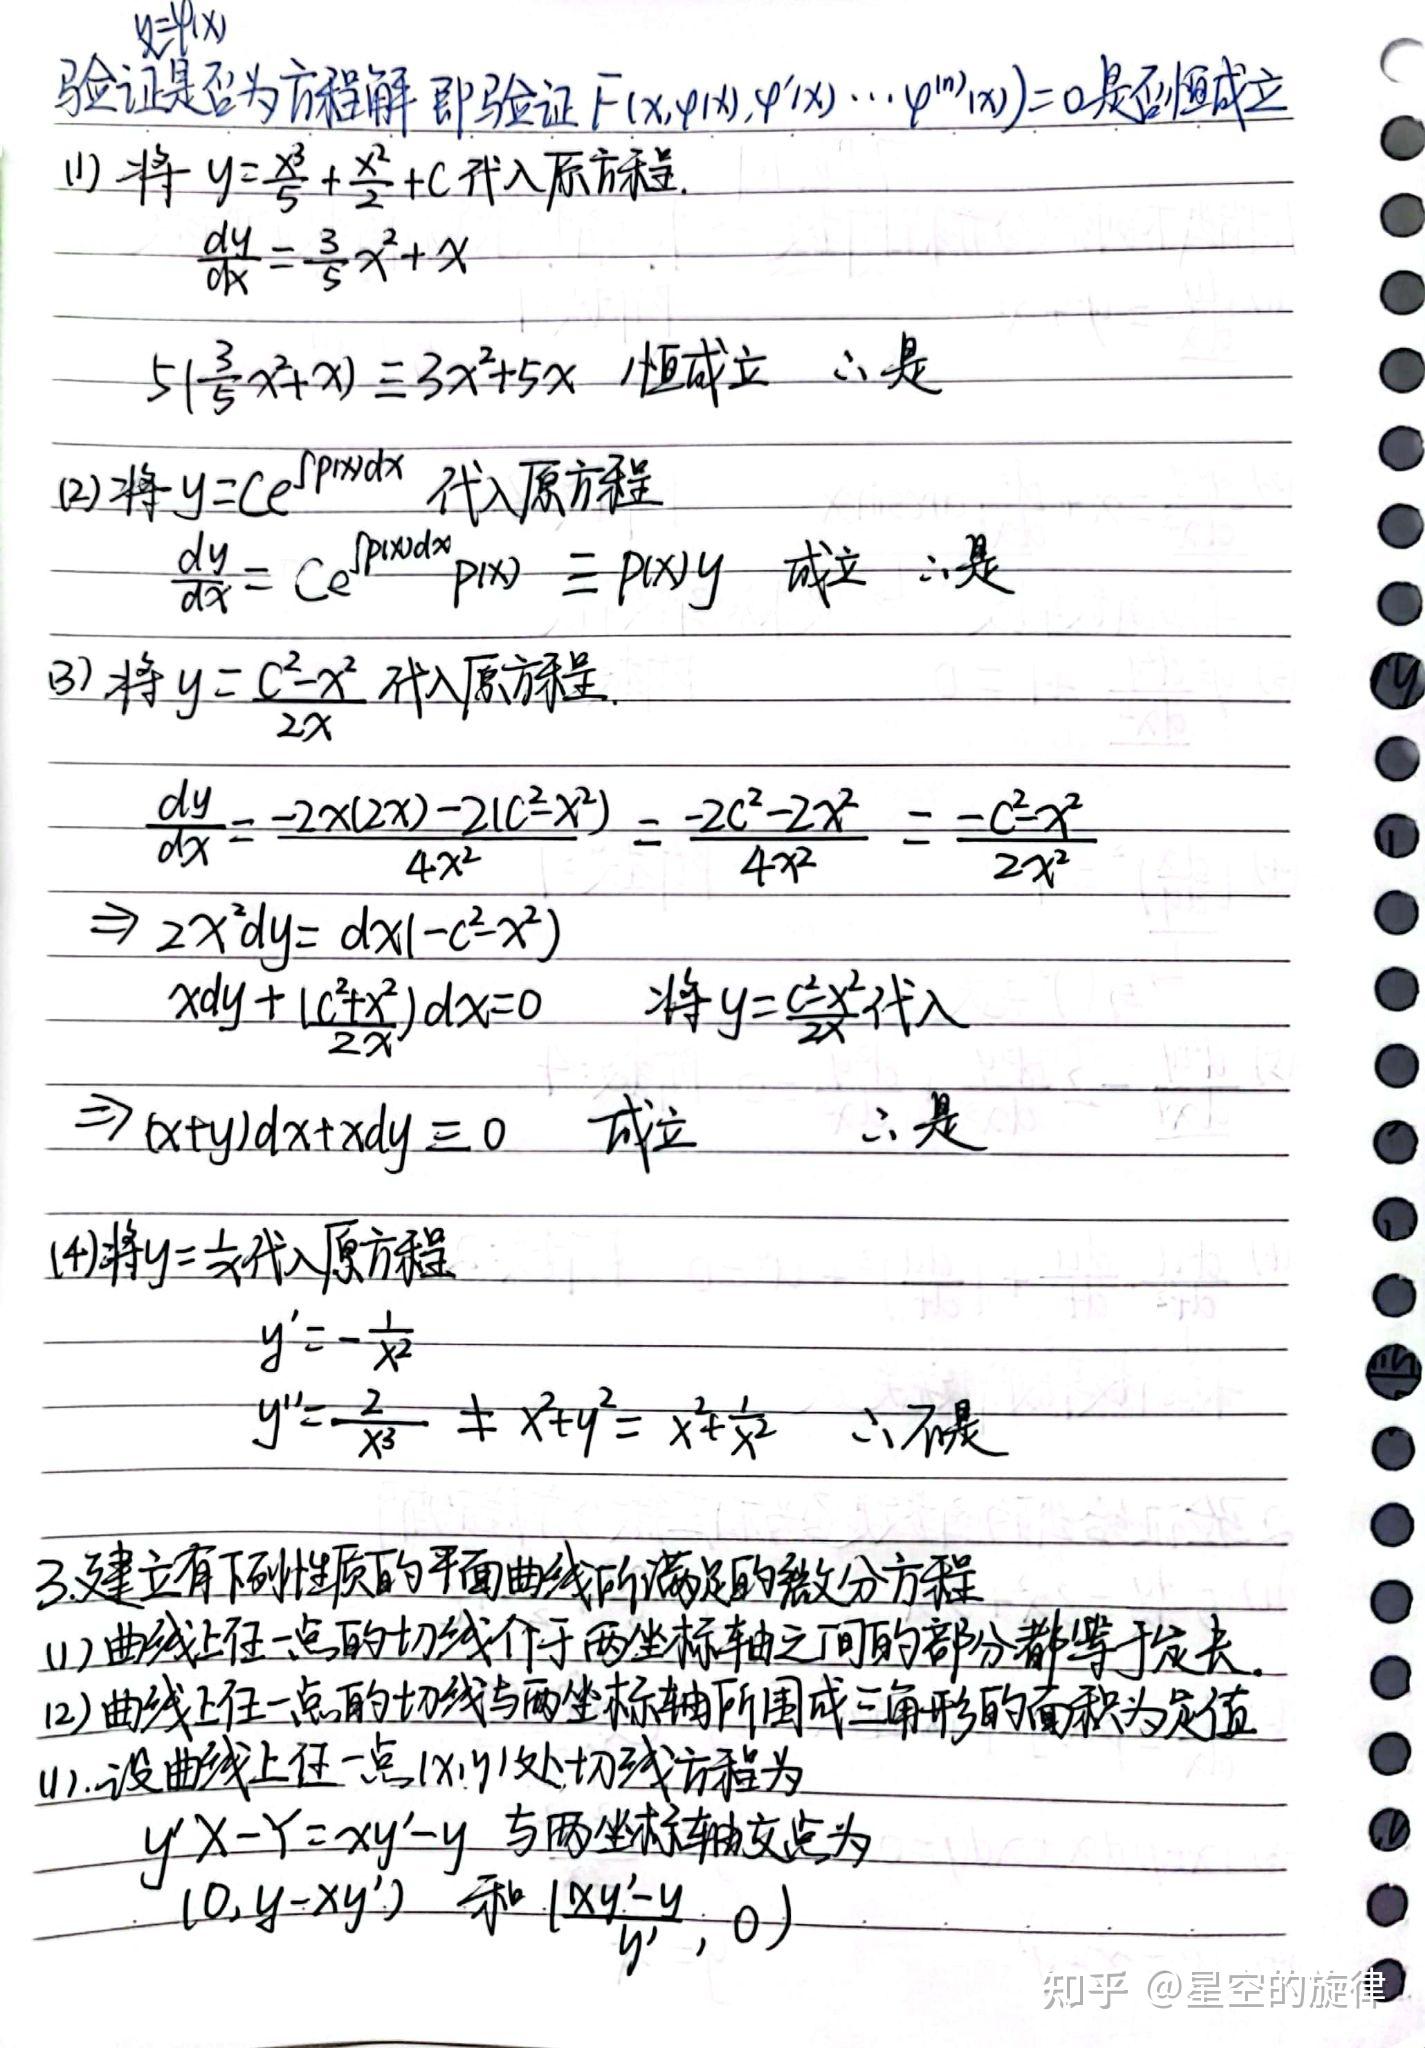 y=φ(x)
验证是否为方程解 即验证 F(x,φ(x),φ'(x)…φ⁽ⁿ⁾(x))=0是否恒成立
(1) 将 y=x³/5+x²/2+C 代入原方程.
dy/dx=3/5x²+x
5(3/5x²+x)≡3x²+5x 恒成立 ∴是
(2) 将 y=Ce^∫p(x)dx 代入原方程
dy/dx=Ce^∫p(x)dx p(x)≡p(x)y 成立 ∴是
(3) 将 y=(C²-x²)/2x 代入原方程.
dy/dx=(-2x(2x)-2(C²-x²))/4x²=(-2C²-2x²)/4x²=(-C²-x²)/2x²
⇒2x²dy=dx(-C²-x²)
xdy+((C²+x²)/2x)dx=0 将y=(C²-x²)/2x代入
⇒(x+y)dx+xdy≡0 成立 ∴是
(4)将y=1/x代入原方程
y'=-1/x²
y''=2/x³≠x²+y²=x²+1/x² ∴不是
3.建立有下列性质的平面曲线所满足的微分方程
(1)曲线上任一点的切线介于两坐标轴之间的部分都等于定长.
(2)曲线上任一点的切线与两坐标轴所围成三角形的面积为定值
(1).设曲线上任一点(x,y)处切线方程为
y'X-Y=xy'-y 与两坐标轴交点为
(0,y-xy') 和((xy'-y)/y',0)
知乎 @星空的旋律